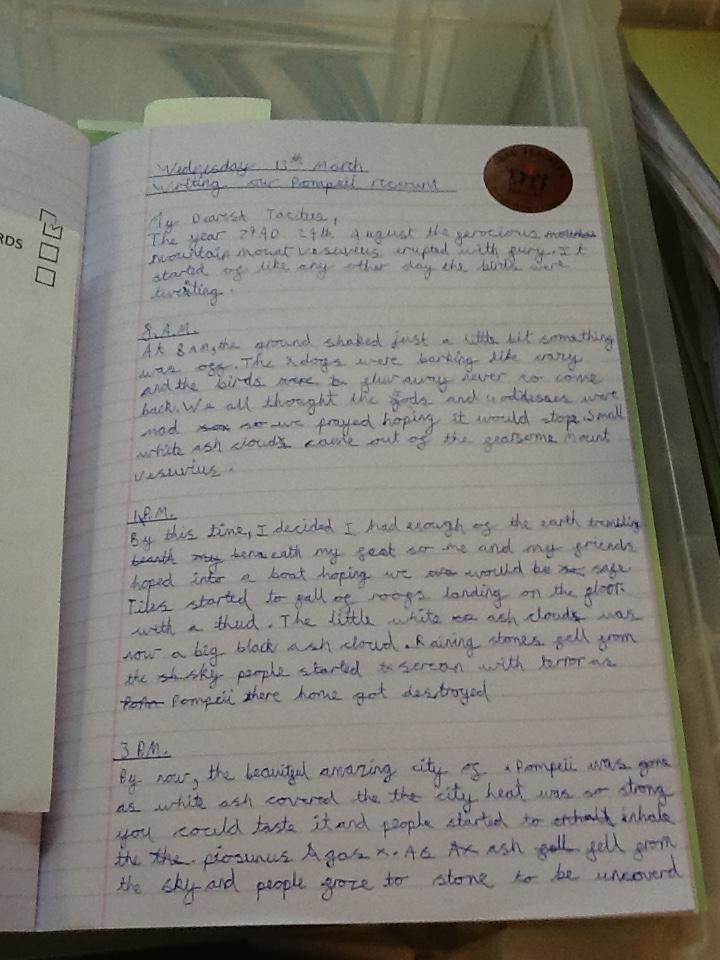 RDS
Wednesday 13th March
Writing our Pompeii recount
My Dearest Tacitus,
The year 79AD 24th August the ferocious
mountain mount vesuvius erupted with fury. It
started of like any other day the birds were
tweeting.
8.A.M.
At 8AM, the ground shaked just a little bit something
was off. The dogs were barking like crazy
and the birds flew away never to come
back. We all thought the gods and Goddesses were
mad so we prayed hoping it would stop. Small
white ash clouds came out of the fearsome Mount
vesuvius.
1.P.M.
By this time, I decided I had enough of the earth trembling
beneath my feet so me and my friends
hoped into a boat hoping we would be safe
Tiles started to fall of roofs landing on the floor.
with a thud. The little white ash clouds was
now a big black ash cloud. Raining stones fell from
the sky people started screan with terror as
Pompeii there home got destroyed
3 P.M.
By now, the beautiful amazing city of Pompeii was gone
as white ash covered the city heat was so strong
you could taste it and people started to inhale
the the piosunus gas. As ash fell from
the sky and people froze to stone to be uncoverd